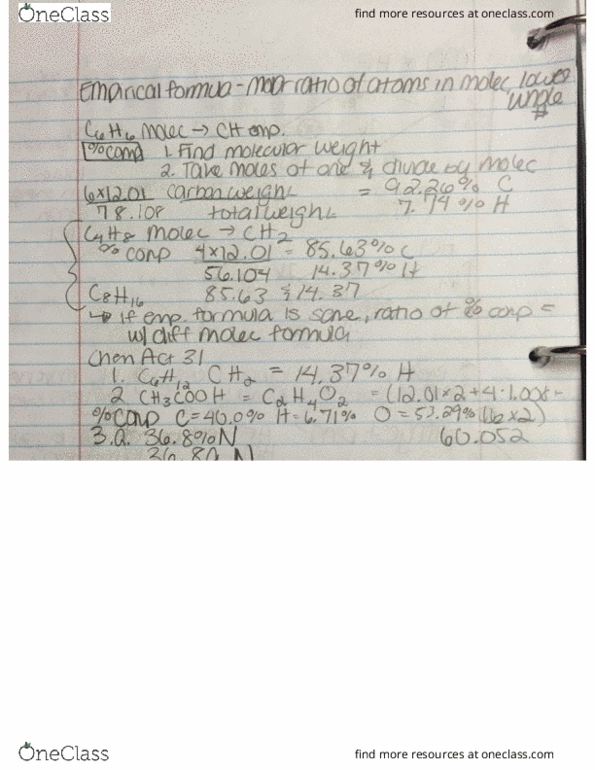 OneClass
find more resources at oneclass.com
Empirical formula - molar ratio of atoms in molec, lowest
whole
#
C6H6 molec → CH emp.
% comp 1. Find molecular weight
2. Take moles of one & divide by molec
6×12.01 carbon weight = 92.26% C
78.108 total weight 7.74% H
C4H8 molec → CH2
% comp 4×12.01 = 85.63% C
56.104 14.37% H
C8H16 85.63 & 14.37
↳ if emp. formula is same, ratio of % comp =
w/ diff molec formula
Chem Act 31
1. C6H12 CH2 = 14.37% H
2. CH3COOH = C2H4O2 = (12.01×2+4·1.008+
% comp C=40.0% H=6.71% O=53.29% (16×2)
3.a. 36.8% N 60.052
36.8g N
OneClass
find more resources at oneclass.com